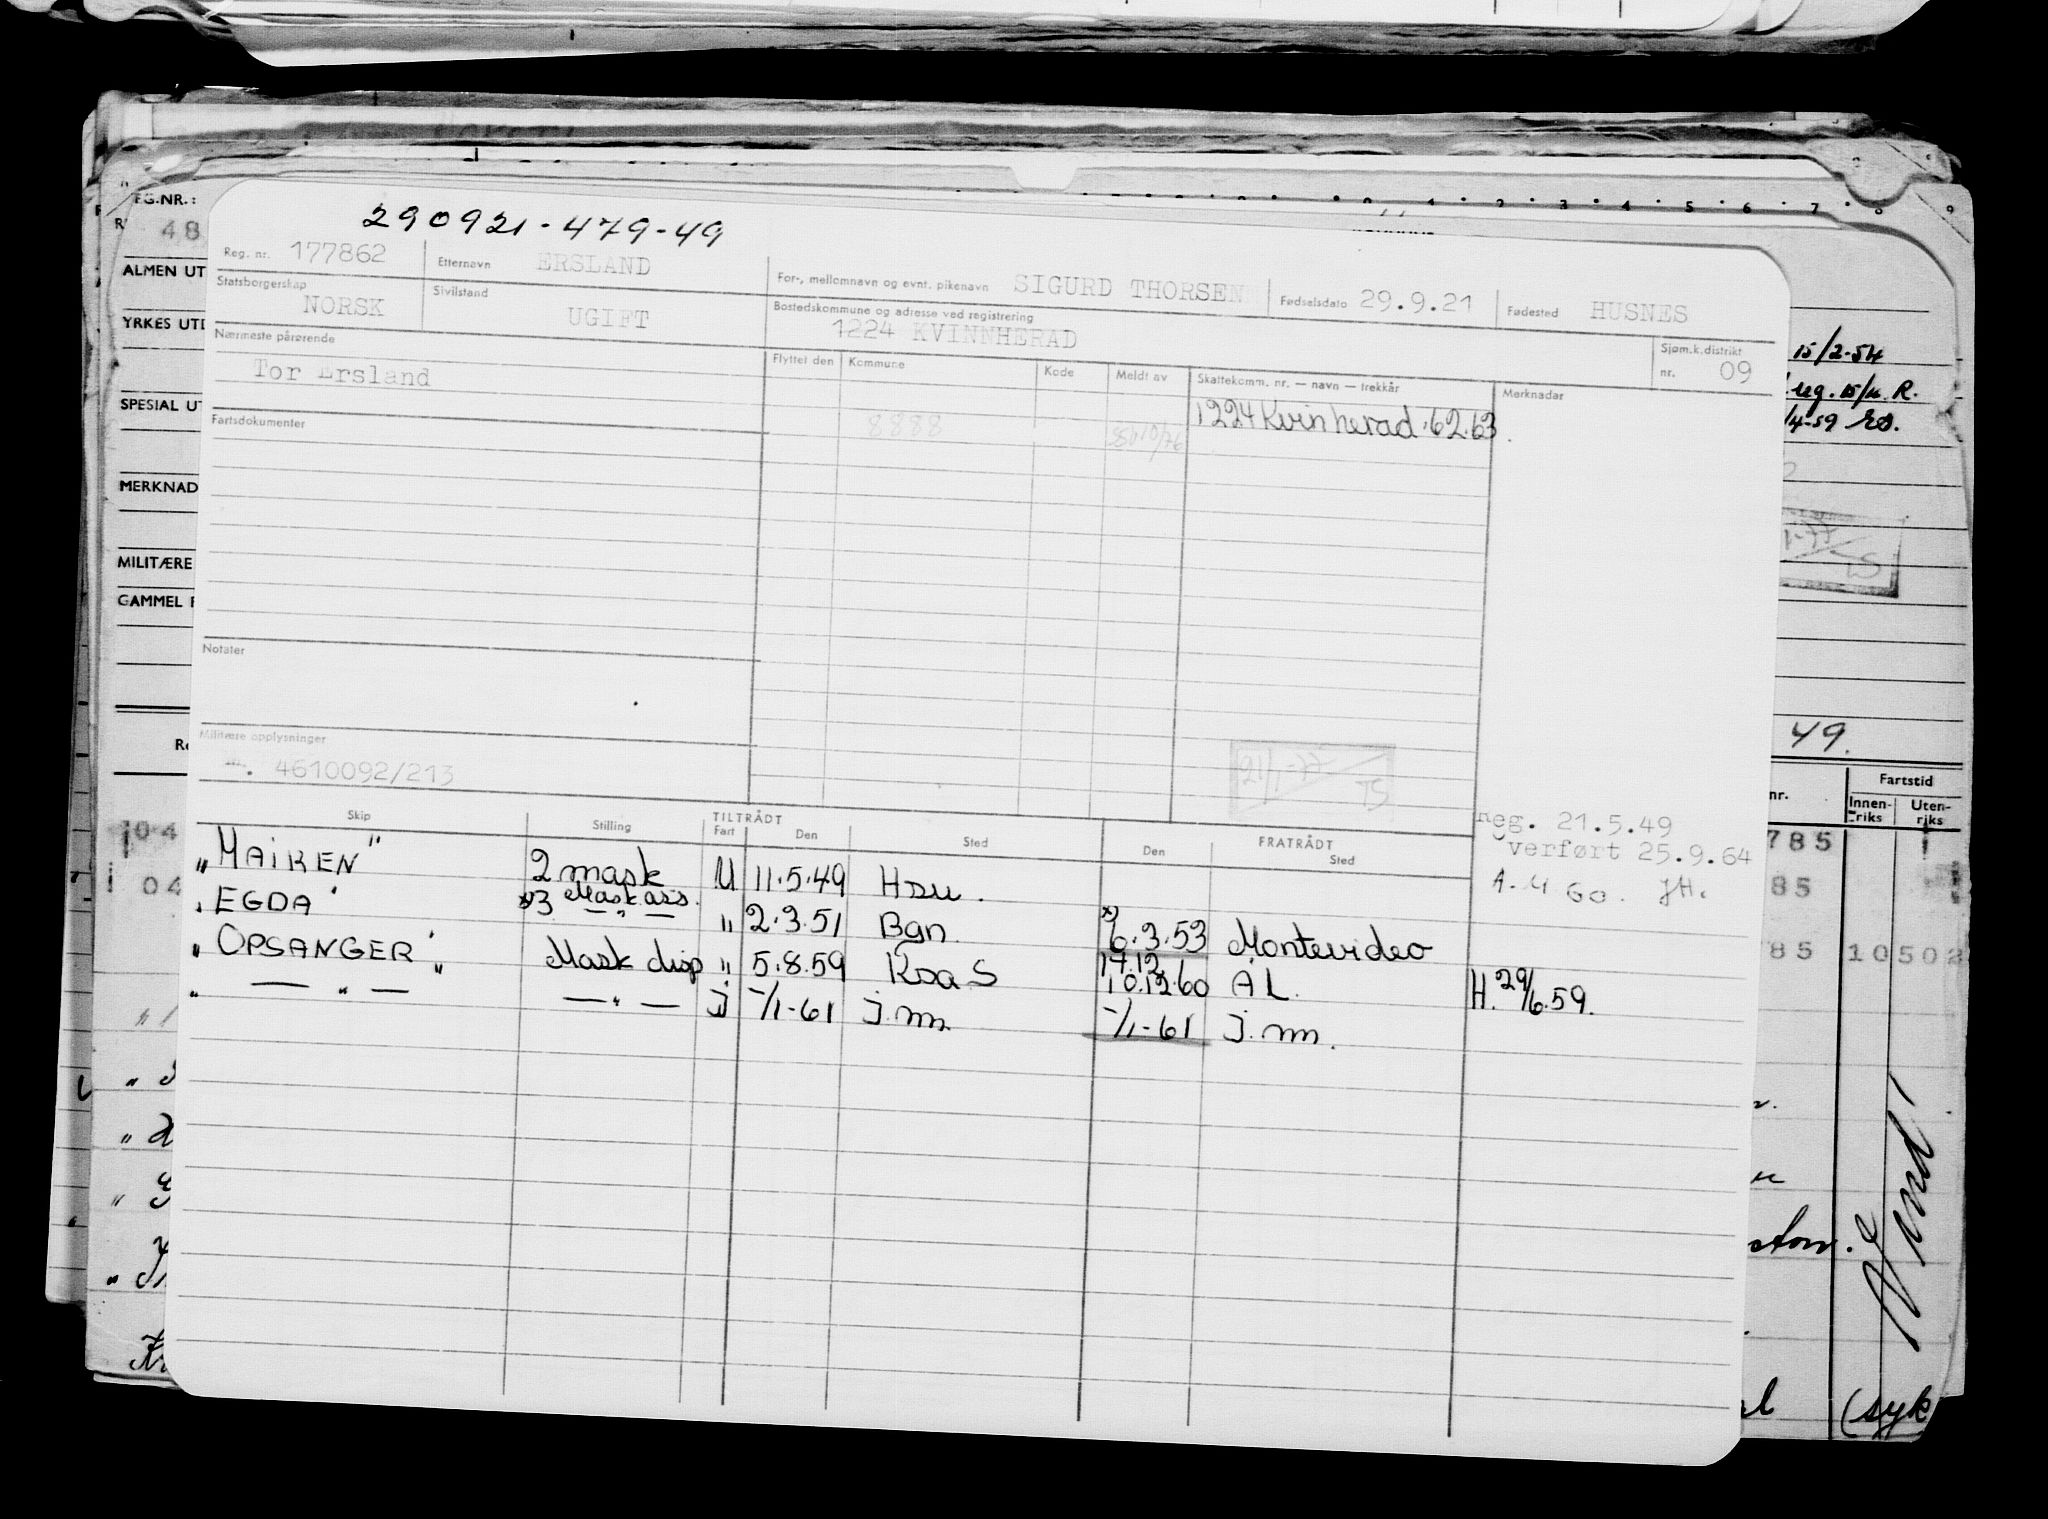 290921-479-49
Reg. nr. 177862 Etternavn ERSLAND For-, mellomnavn og evnt. pikenavn SIGURD THORSEN Fødselsdato 29.9.21 Fødested HUSNES
Statsborgerskap NORSK Sivilstand UGIFT Bostedskommune og adresse ved registrering 1224 KVINNHERAD Sjøm.k.distrikt nr. 09
Nærmeste pårørende Flyttet den Kommune Kode Meldt av Skattekomm. nr. — navn — trekkår Merknader
Tor Ersland
1224 Kvinherad 62.63
Fartsdokumenter 8888
Notater
Militære opplysninger
4610092/213
21/1-77 TS
reg. 21.5.49
verført 25.9.64
A.M 60. JH.
Skip Stilling TILTRÅDT Fart Den Sted FRATRÅDT Den Sted
"MAIKEN" 2 mask U 11.5.49 Hsu.
"EGDA" x)3 Mask ass. — " — " 2.3.51 Bgn. x) 6.3.53 Montevideo
17.12.
"OPSANGER" Mask disp " 5.8.59 Koa S 10.12.60 AL. H. 29/6.59.
" — " — — " — J -/1-61 j.nm. -/1-61 j.nm.
REG.NR.:
48
ALMEN UT
YRKES UTD
SPESIAL UT
MERKNAD
MILITÆRE
GAMMEL F
04
04
15/2-54
reg. 15/11. R.
/4-59
49.
nr. Fartstid
Innenriks Utenriks
785
85
85 10502
(syk